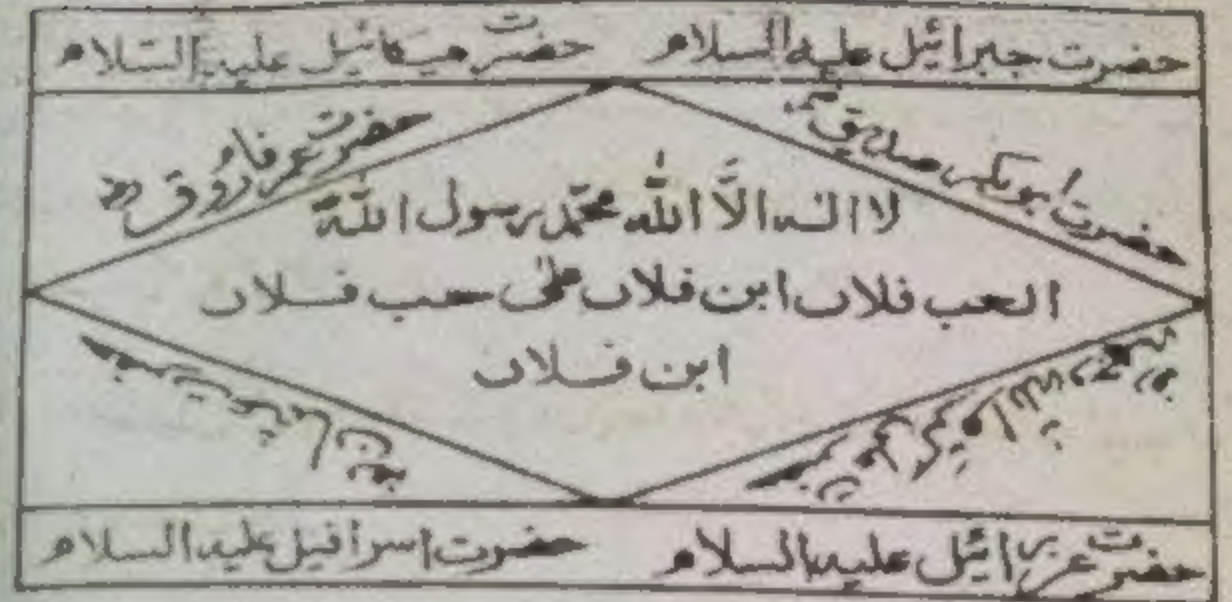 حضرت جبرائیل علیہ السلام
حضرت میکائیل علیہ السّلام
حضرت ابوبکر صدیق رضہ
حضرت عمر فاروق رضہ
لا الہ الّا اللّٰہ محمّد رسول اللّٰہ
الحب فلاں ابن فلاں علیٰ حب فلاں
ابن فلاں
حضرت
حضرت
حضرت عزرائیل علیہ السلام
حضرت اسرافیل علیہ السلام